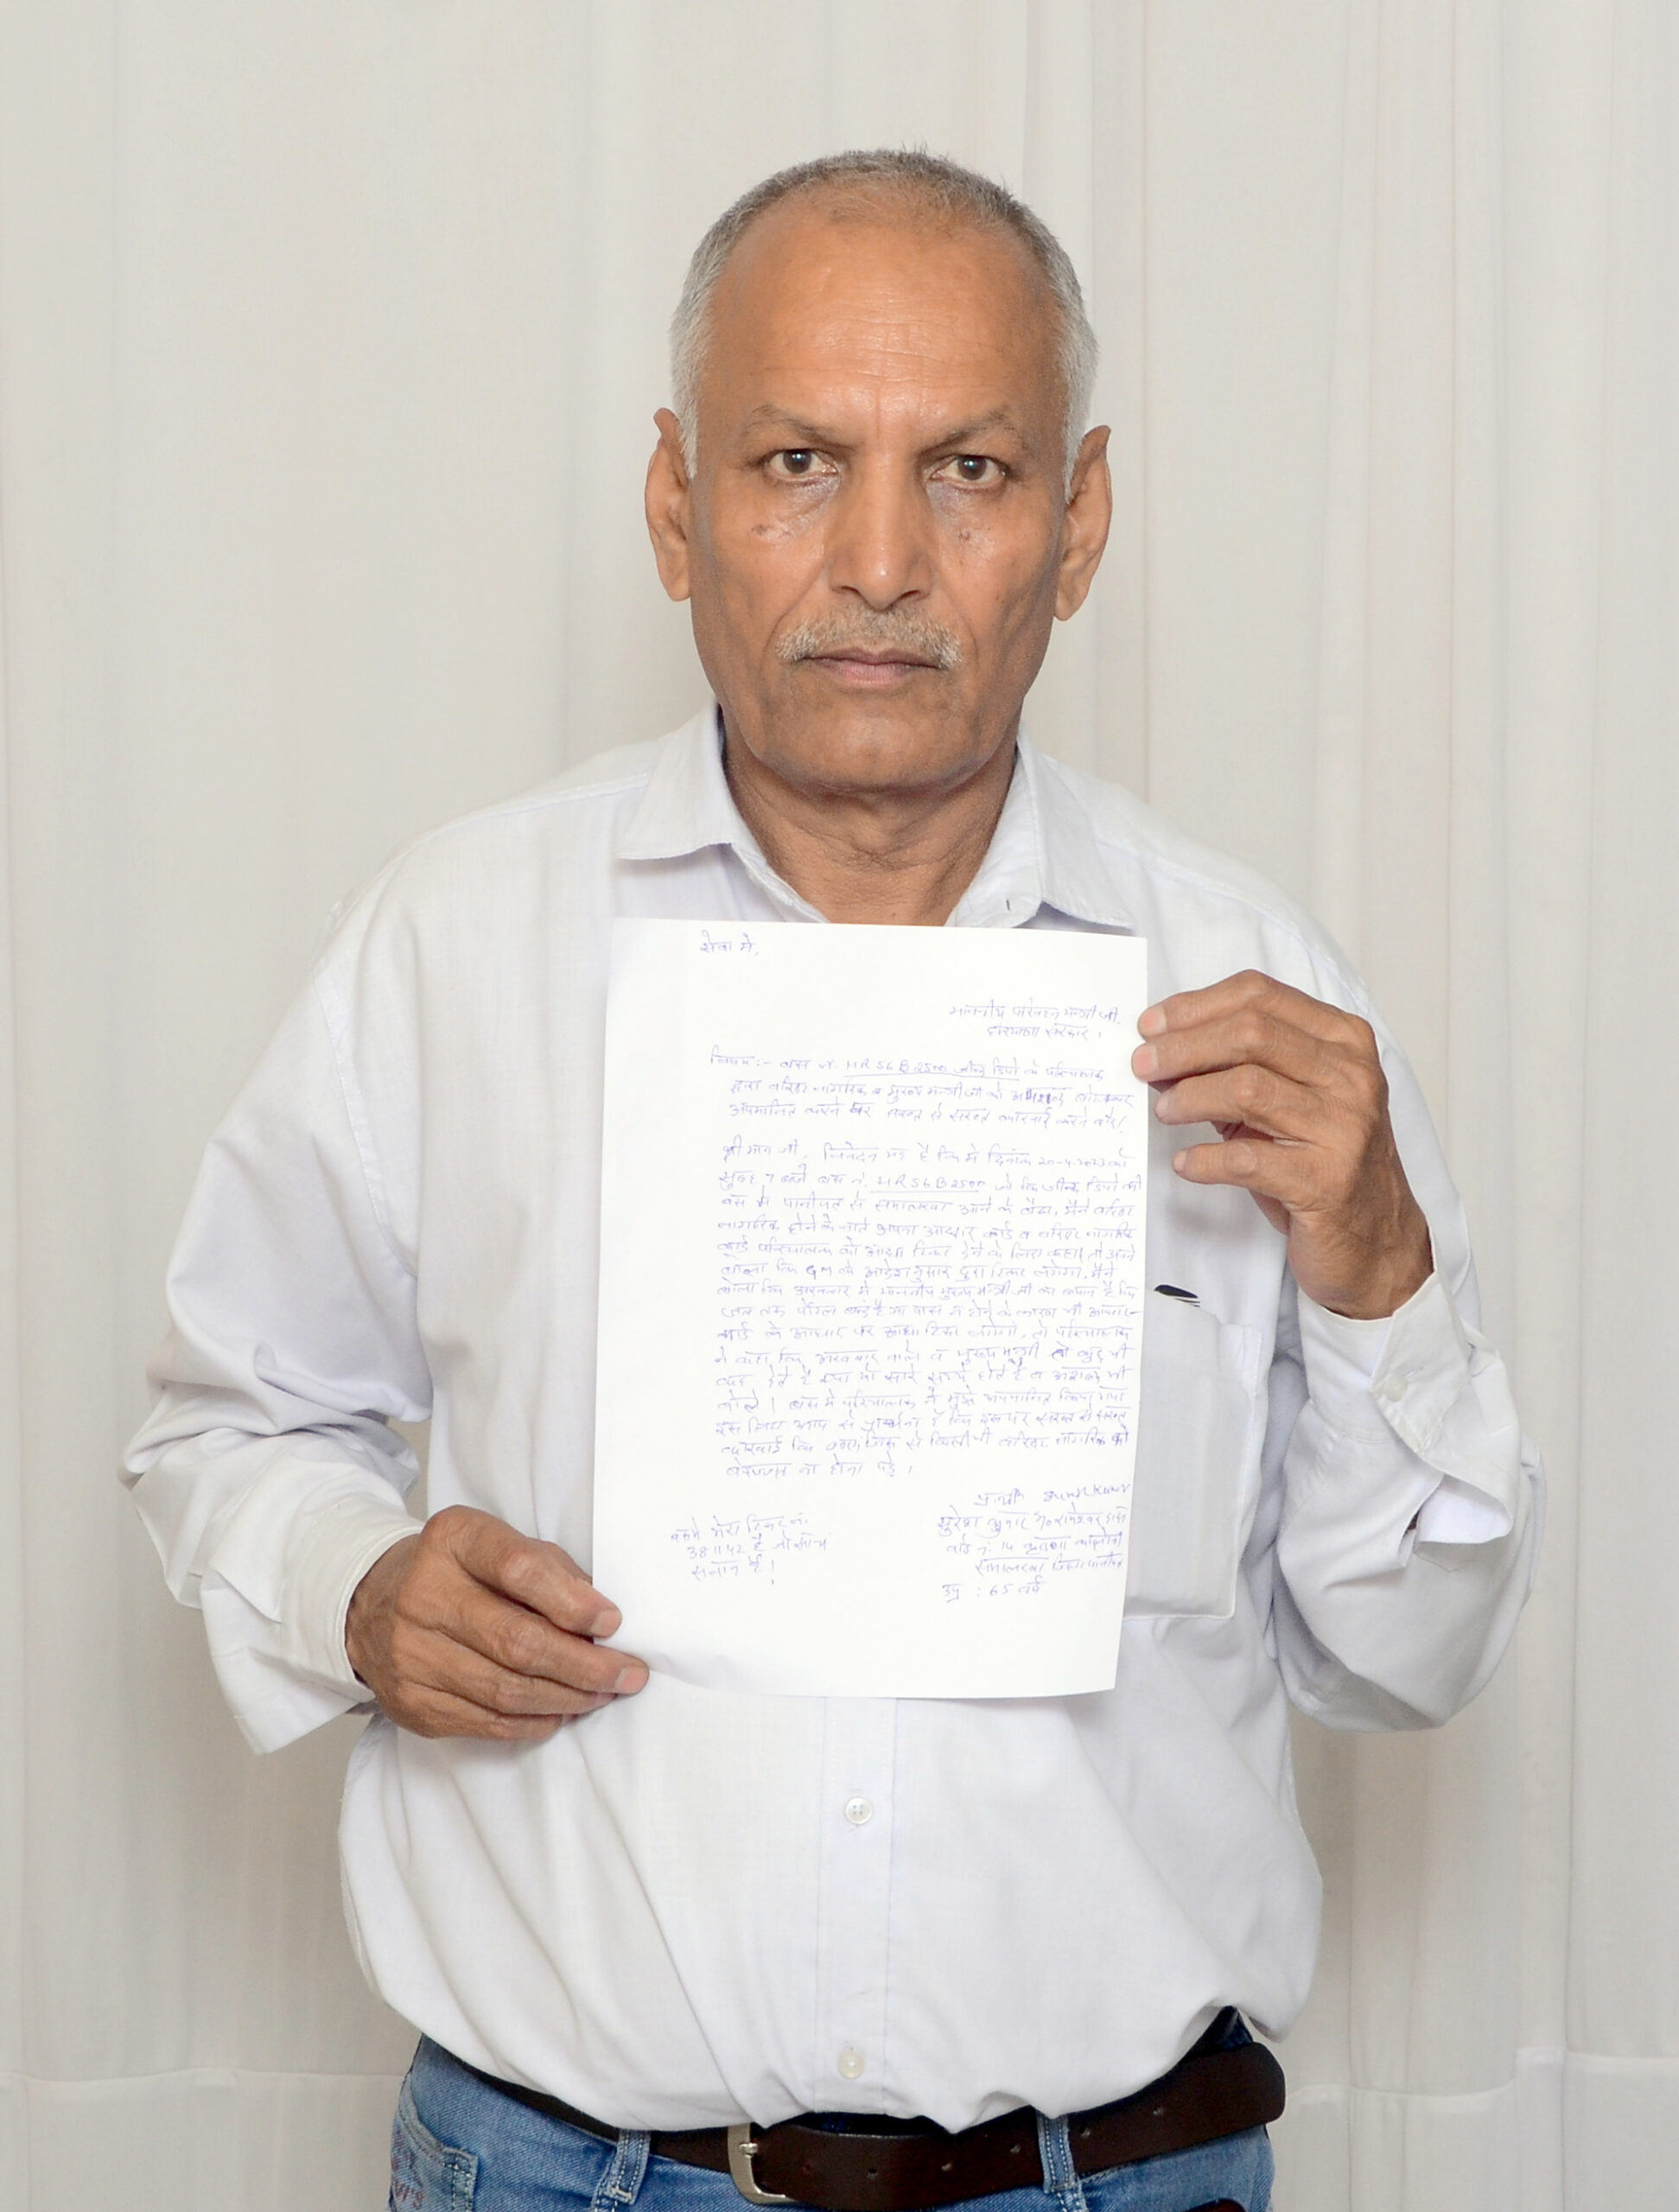 सेवा में,
माननीय परिवहन मन्त्री जी,
हरियाणा सरकार ।
विषय :- बस नं. HR 56 B 2500 जीन्द डिपो के परिचालक
द्वारा वरिष्ठ नागरिक व मुख्य मन्त्री जी को अपशब्द बोलकर
अपमानित करने पर सख्त से सख्त कारवाई करने बारे।
श्री मान जी, निवेदन यह है कि मैं दिनांक 20-4-2023 को
सुबह 7 बजे बस नं. HR 56 B 2500 जो कि जीन्द डिपो की
बस में पानीपत से समालखा आने के लिए बैठा, मैंने वरिष्ठ
नागरिक होने के नाते अपना आधार कार्ड व वरिष्ठ नागरिक
कार्ड परिचालक को आधा टिकट देने के लिए कहा, तो उसने
बोला कि GM के आदेशानुसार पुरा टिकट लगेगा, मैंने
बोला कि अखबार में माननीय मुख्य मन्त्री जी का ब्यान है कि
जब तक पोर्टल बंद है या पास न होने के कारण भी आधार-
कार्ड के आधार पर आधा टिकट लगेगा, तो परिचालक
ने कहा कि अखबार वाले व मुख्य मन्त्री तो कुछ भी
कह देते हैं व अपशब्द भी
बोले । बस में परिचालक ने मुझे अपमानित किया गया
इस लिए आप से प्रार्थना है कि इस पर सख्त से सख्त
कारवाई कि जाए जिस से किसी भी वरिष्ठ नागरिक को
बेइज्जत ना होना पड़े ।
प्रार्थी
सुरेश कुमार
वार्ड नं. 14 कालोनी
समालखा जिला पानीपत
उम्र : 65 वर्ष
बसमें मेरा टिकट नं.
381142 है जो साथ
सलंग्न है।